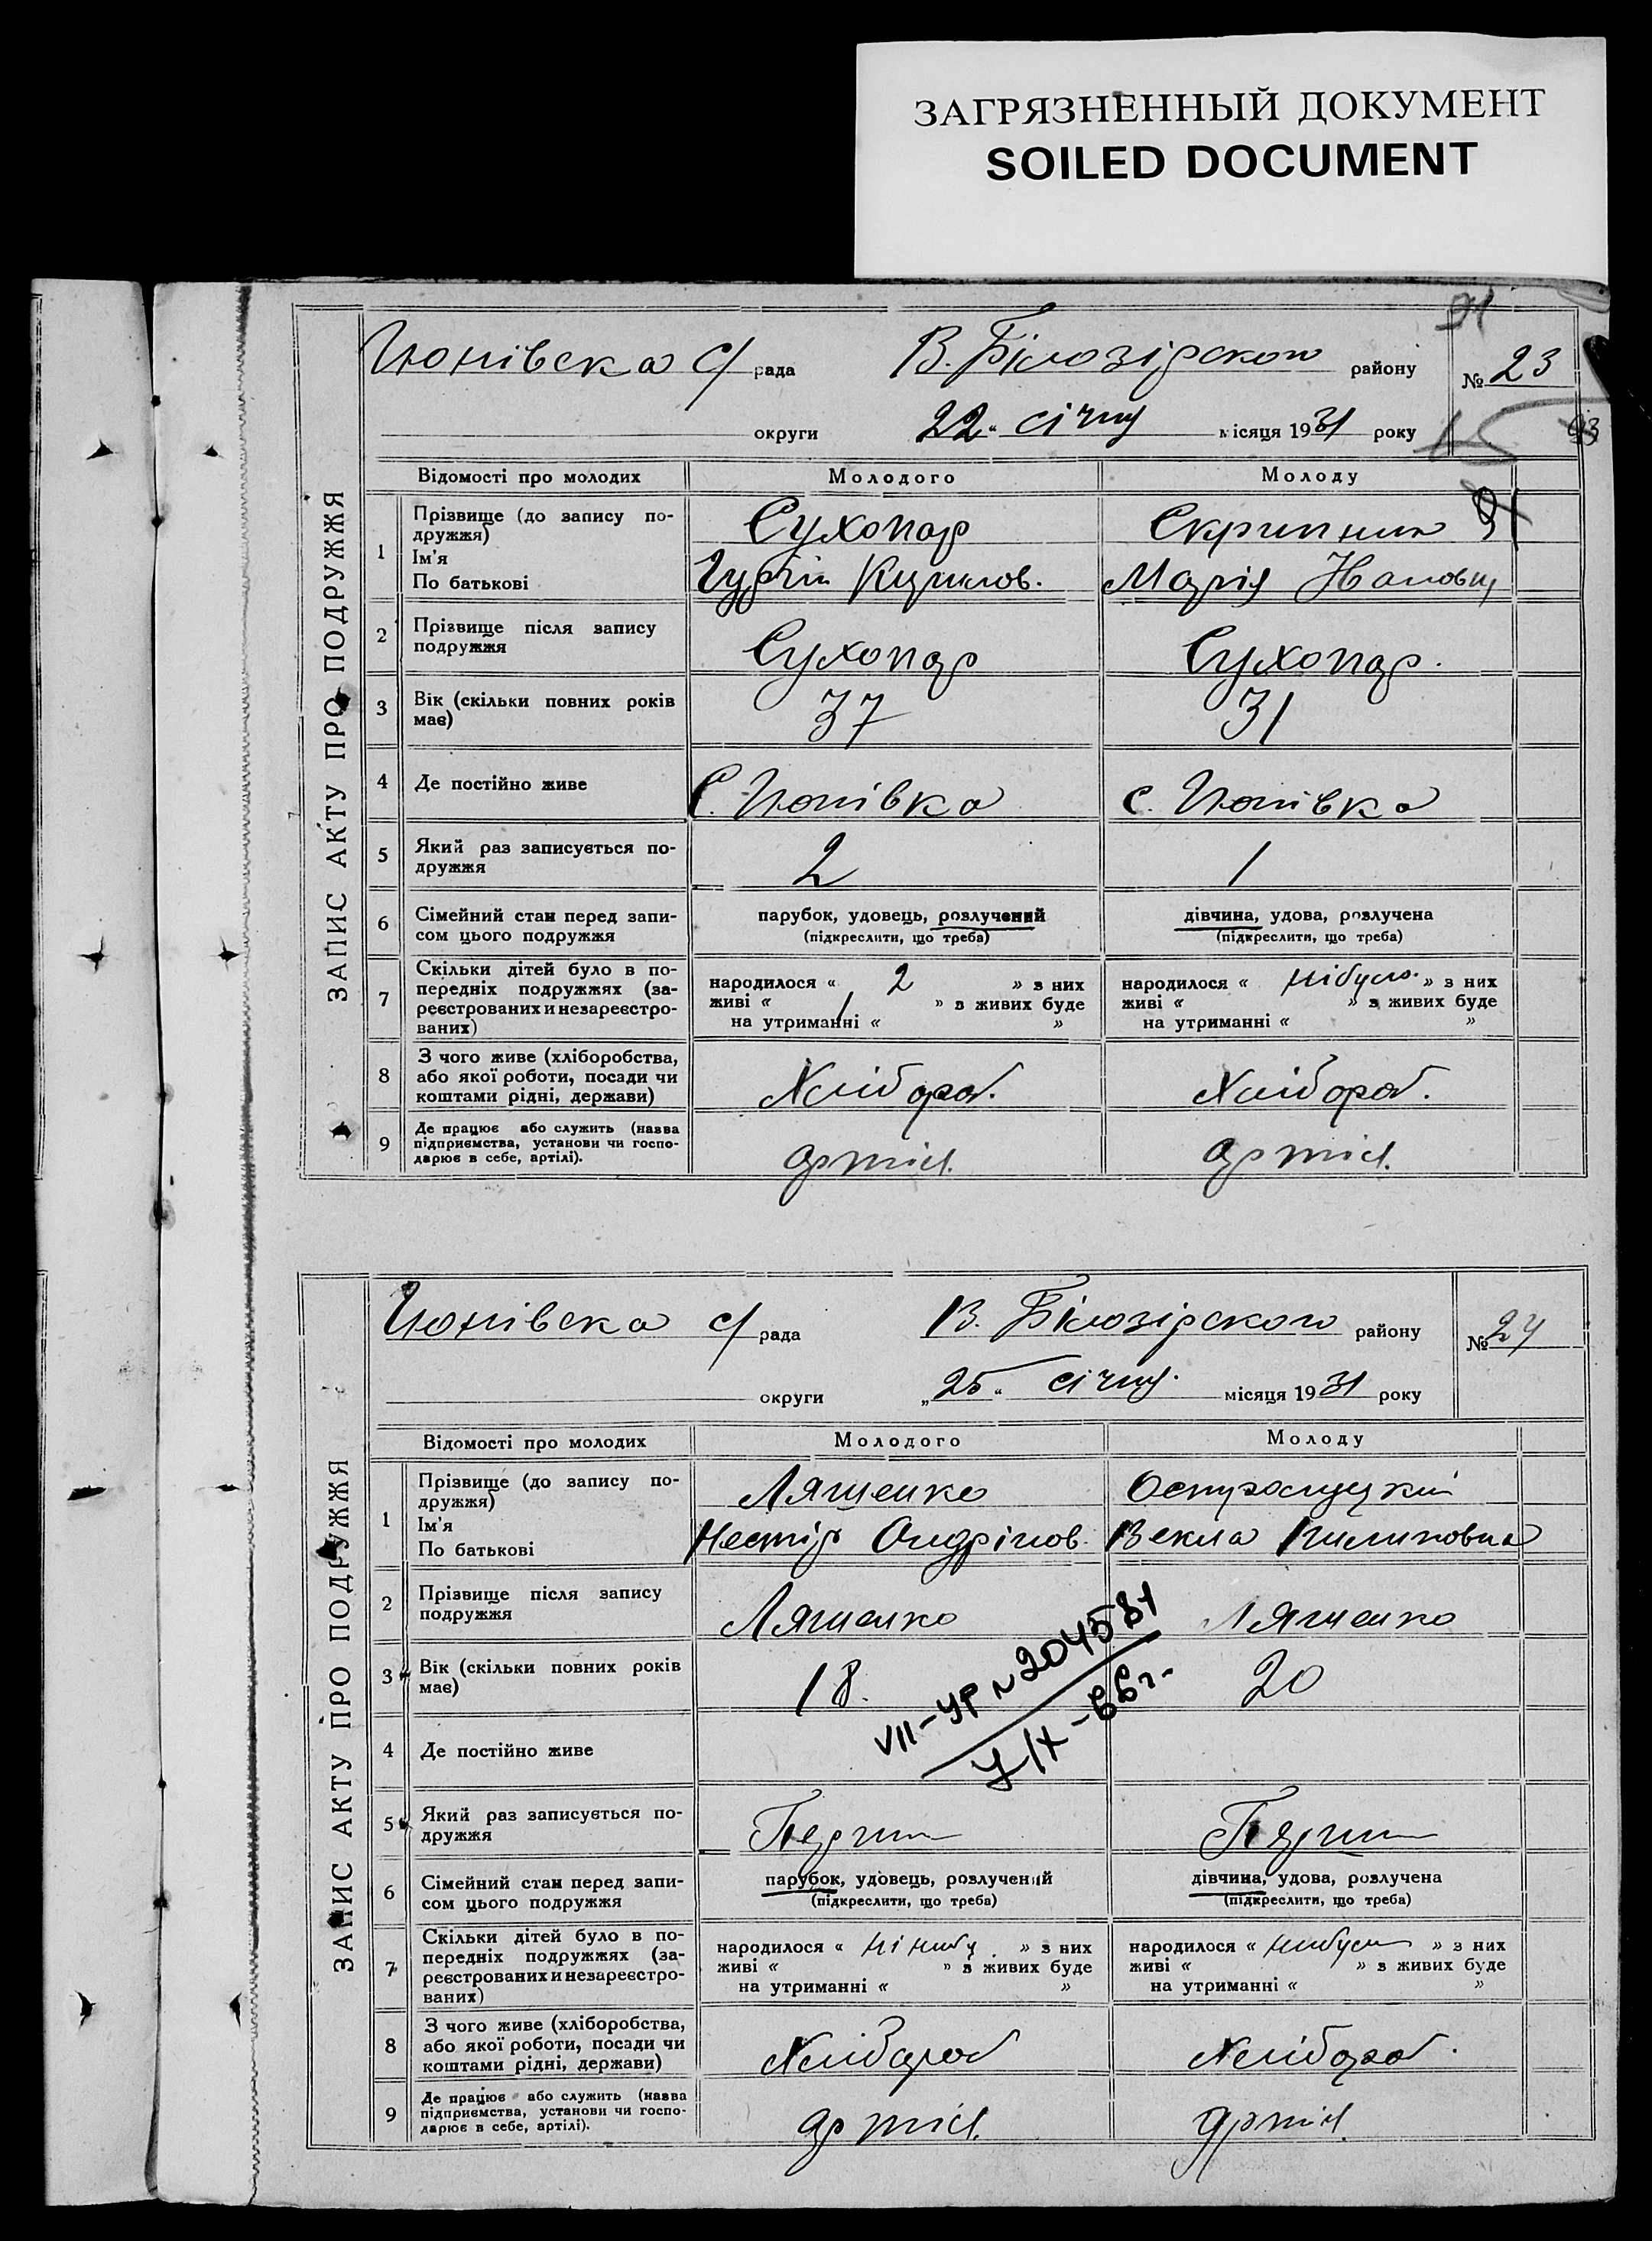 ЗАГРЯЗНЕННЫЙ ДОКУМЕНТ
SOILED DOCUMENT
ЗАПИС АКТУ ПРО ПОДРУЖЖЯ
с/ рада В. Білозірского району № 23
округи 22 " січня місяця 1931 року
Відомості про молодих Молодого Молоду
1 Прізвище (до запису по-
дружжя) Сухопар Скрипник
Ім'я
По батькові Гурій Кирилов. Марія Івановна
2 Прізвище після запису
подружжя Сухопар Сухопар.
3 Вік (скільки повних років
має) 37 31
4 Де постійно живе
5 Який раз записується по-
дружжя 2 1
6 Сімейний стан перед запи-
сом цього подружжя
парубок, удовець, розлучений
(підкреслити, що треба)
дівчина, удова, розлучена
(підкреслити, що треба)
7 Скільки дітей було в по-
передніх подружжях (за-
реєстрованих и незареєстро-
ваних)
народилося « 2 » з них
живі « 1 » з живих буде
на утриманні « »
народилося « нібуло » з них
живі « » з живих буде
на утриманні « »
8 З чого живе (хліборобства,
або якої роботи, посади чи
коштами рідні, держави) Хлібороб. Хлібороб.
9 Де працює або служить (назва
підприємства, установи чи госпо-
дарює в себе, артілі). артіл. артіл.
ЗАПИС АКТУ ПРО ПОДРУЖЖЯ
с/ рада В. Білозірского району № 24
округи „ 25 " січня місяця 1931 року
Відомості про молодих Молодого Молоду
1 Прізвище (до запису по-
дружжя) Ляшенко
Ім'я
По батькові Нестір Андріов. Векла Пилиповна
2 Прізвище після запису
подружжя Ляшенко Ляшенко
3 Вік (скільки повних років
має) 18. 20
VII-УР №
4 Де постійно живе
5 Який раз записується по-
дружжя
6 Сімейний стан перед запи-
сом цього подружжя
парубок, удовець, розлучений
(підкреслити, що треба)
дівчина, удова, розлучена
(підкреслити, що треба)
7 Скільки дітей було в по-
передніх подружжях (за-
реєстрованих и незареєстро-
ваних)
народилося « » з них
живі « » з живих буде
на утриманні « »
народилося « » з них
живі « » з живих буде
на утриманні « »
8 З чого живе (хліборобства,
або якої роботи, посади чи
коштами рідні, держави) Хлібороб Хлібороб.
9 Де працює або служить (назва
підприємства, установи чи госпо-
дарює в себе, артілі). артіл. артіл.